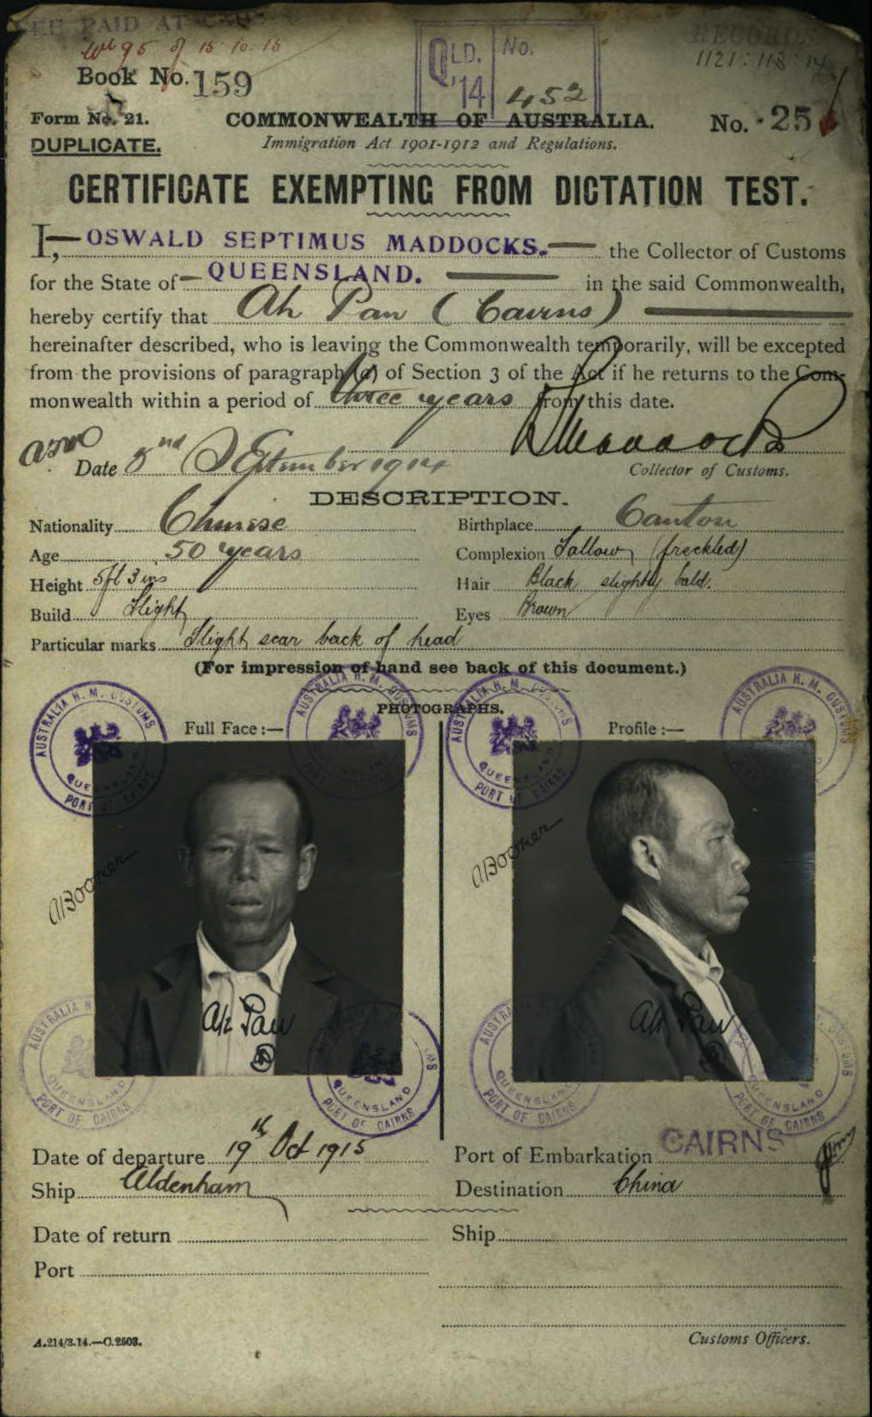 PAID AT
15 10 15
Book No. 159
QLD. No.
'14 452
Form No. 21.
COMMONWEALTH OF AUSTRALIA.
No. 25
DUPLICATE.
Immigration Act 1901-1912 and Regulations.
CERTIFICATE EXEMPTING FROM DICTATION TEST.
I, OSWALD SEPTIMUS MADDOCKS. the Collector of Customs
for the State of QUEENSLAND. in the said Commonwealth,
hereby certify that Ah Pan (Cairns)
hereinafter described, who is leaving the Commonwealth temporarily, will be excepted
from the provisions of paragraph (a) of Section 3 of the Act if he returns to the Com-
monwealth within a period of three years from this date.
Date September 1914
Collector of Customs.
DESCRIPTION.
Nationality Chinese Birthplace Canton
Age 50 years Complexion Sallow, (freckled)
Height 5ft 3 ins Hair Black slightly bald.
Build Slight Eyes Brown
Particular marks Slight scar back of head
(For impression of hand see back of this document.)
PHOTOGRAPHS.
Full Face :— Profile :—
AUSTRALIA H. M. CUSTOMS QUEENSLAND PORT OF CAIRNS
AUSTRALIA H. M. CUSTOMS
AUSTRALIA H. M. QUEENSLAND PORT OF CAIRNS
AUSTRALIA H. M. CUSTOMS
Ah Pan
Ah Pan
AUSTRALIA H QUEENSLAND PORT OF CAIRNS
QUEENSLAND PORT OF CAIRNS
AUSTRALIA PORT OF CAIRNS
QUEENSLAND CAIRNS
Date of departure 19th Oct 1915 Port of Embarkation CAIRNS
Ship Aldenham Destination China
Date of return Ship
Port
A.214/3.14.—C.2503.
Customs Officers.